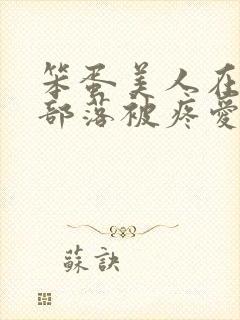 笨蛋美人在
部落被疼愛
蘇訣